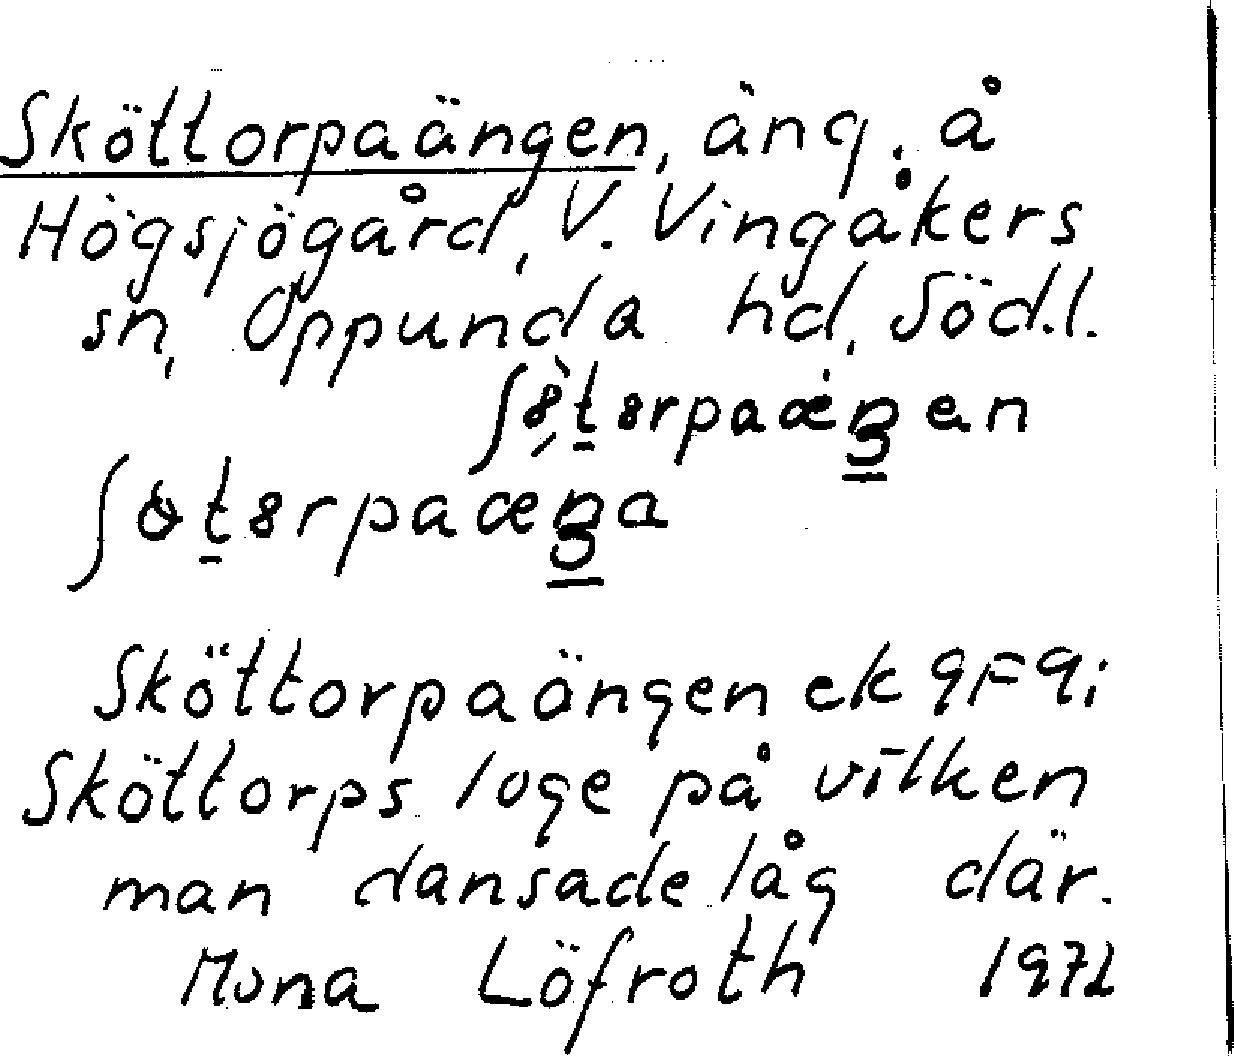 Sköttorpaängen, äng, å
Högsjögård, V. Vingåkers
sn, Oppunda hd, Södl.
man dansade låg där.
Sköttorpaängen ek 9F9i
Sköttorps loge på vilken
Mona Löfroth 1972